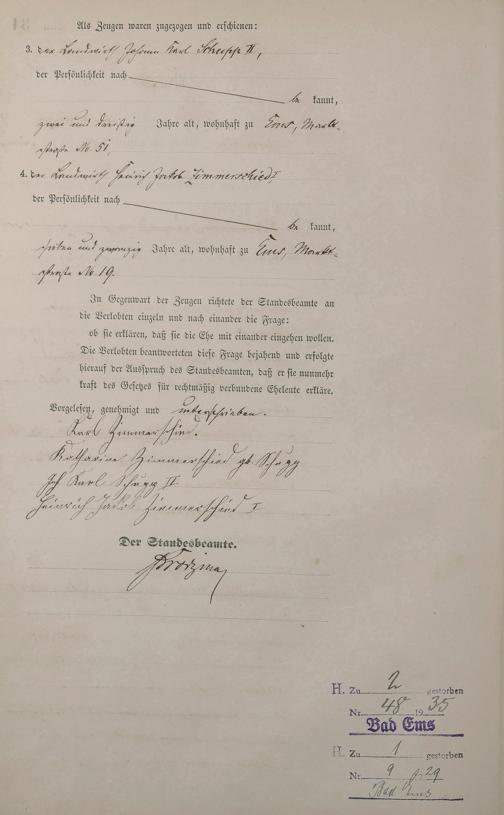 Als Zeugen waren zugezogen und erschienen:
3. der Landwirth Johann Karl Schupp II,
der Persönlichkeit nach
be kannt,
zwei und dreißig Jahre alt, wohnhaft zu Ems, Markt-
straße No. 51.
4. der Landwirth Heinrich Jakob Zimmerschied I,
der Persönlichkeit nach
be kannt,
sieben und zwanzig Jahre alt, wohnhaft zu Ems, Markt-
straße No. 19.
In Gegenwart der Zeugen richtete der Standesbeamte an
die Verlobten einzeln und nach einander die Frage:
ob sie erklären, daß sie die Ehe mit einander eingehen wollen.
Die Verlobten beantworteten diese Frage bejahend und erfolgte
hierauf der Ausspruch des Standesbeamten, daß er sie nunmehr
kraft des Gesetzes für rechtmäßig verbundene Eheleute erkläre.
Vorgelesen, genehmigt und unterschrieben.
Karl Zimmerschied.
Katharine Zimmerschied gb. Schupp
Joh Karl Schupp II
Heinrich Jakob Zimmerschied I
Der Standesbeamte.
H. Zu 2 gestorben
Nr. 48 1935
Bad Ems
H. Zu 1 gestorben
Nr. 9 29
Bad Ems